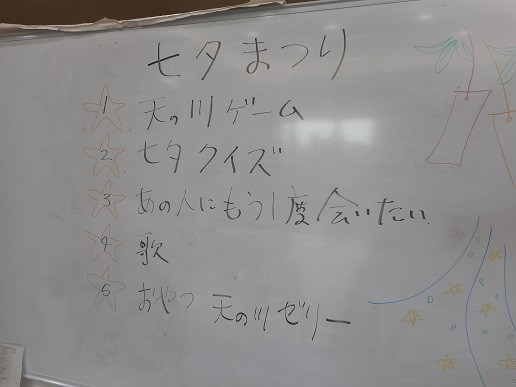 七夕まつり
1 天の川ゲーム
2 七夕クイズ
3 あの人にもう1度会いたい
4 歌
5 おやつ 天の川ゼリー